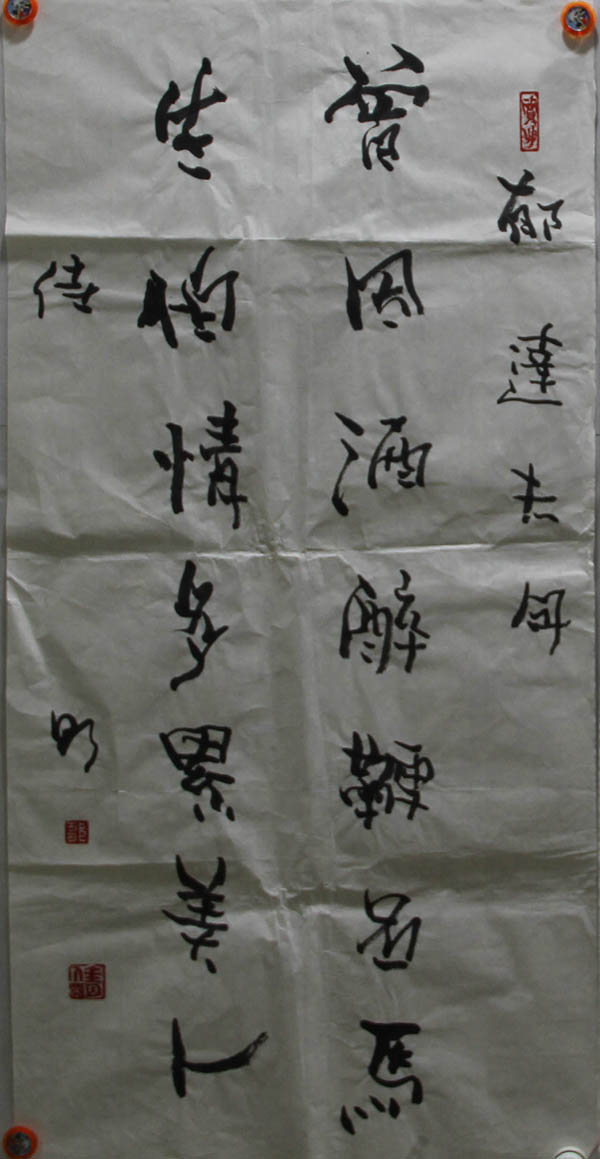 郁達夫句
曾因酒醉鞭名馬
生怕情多累美人